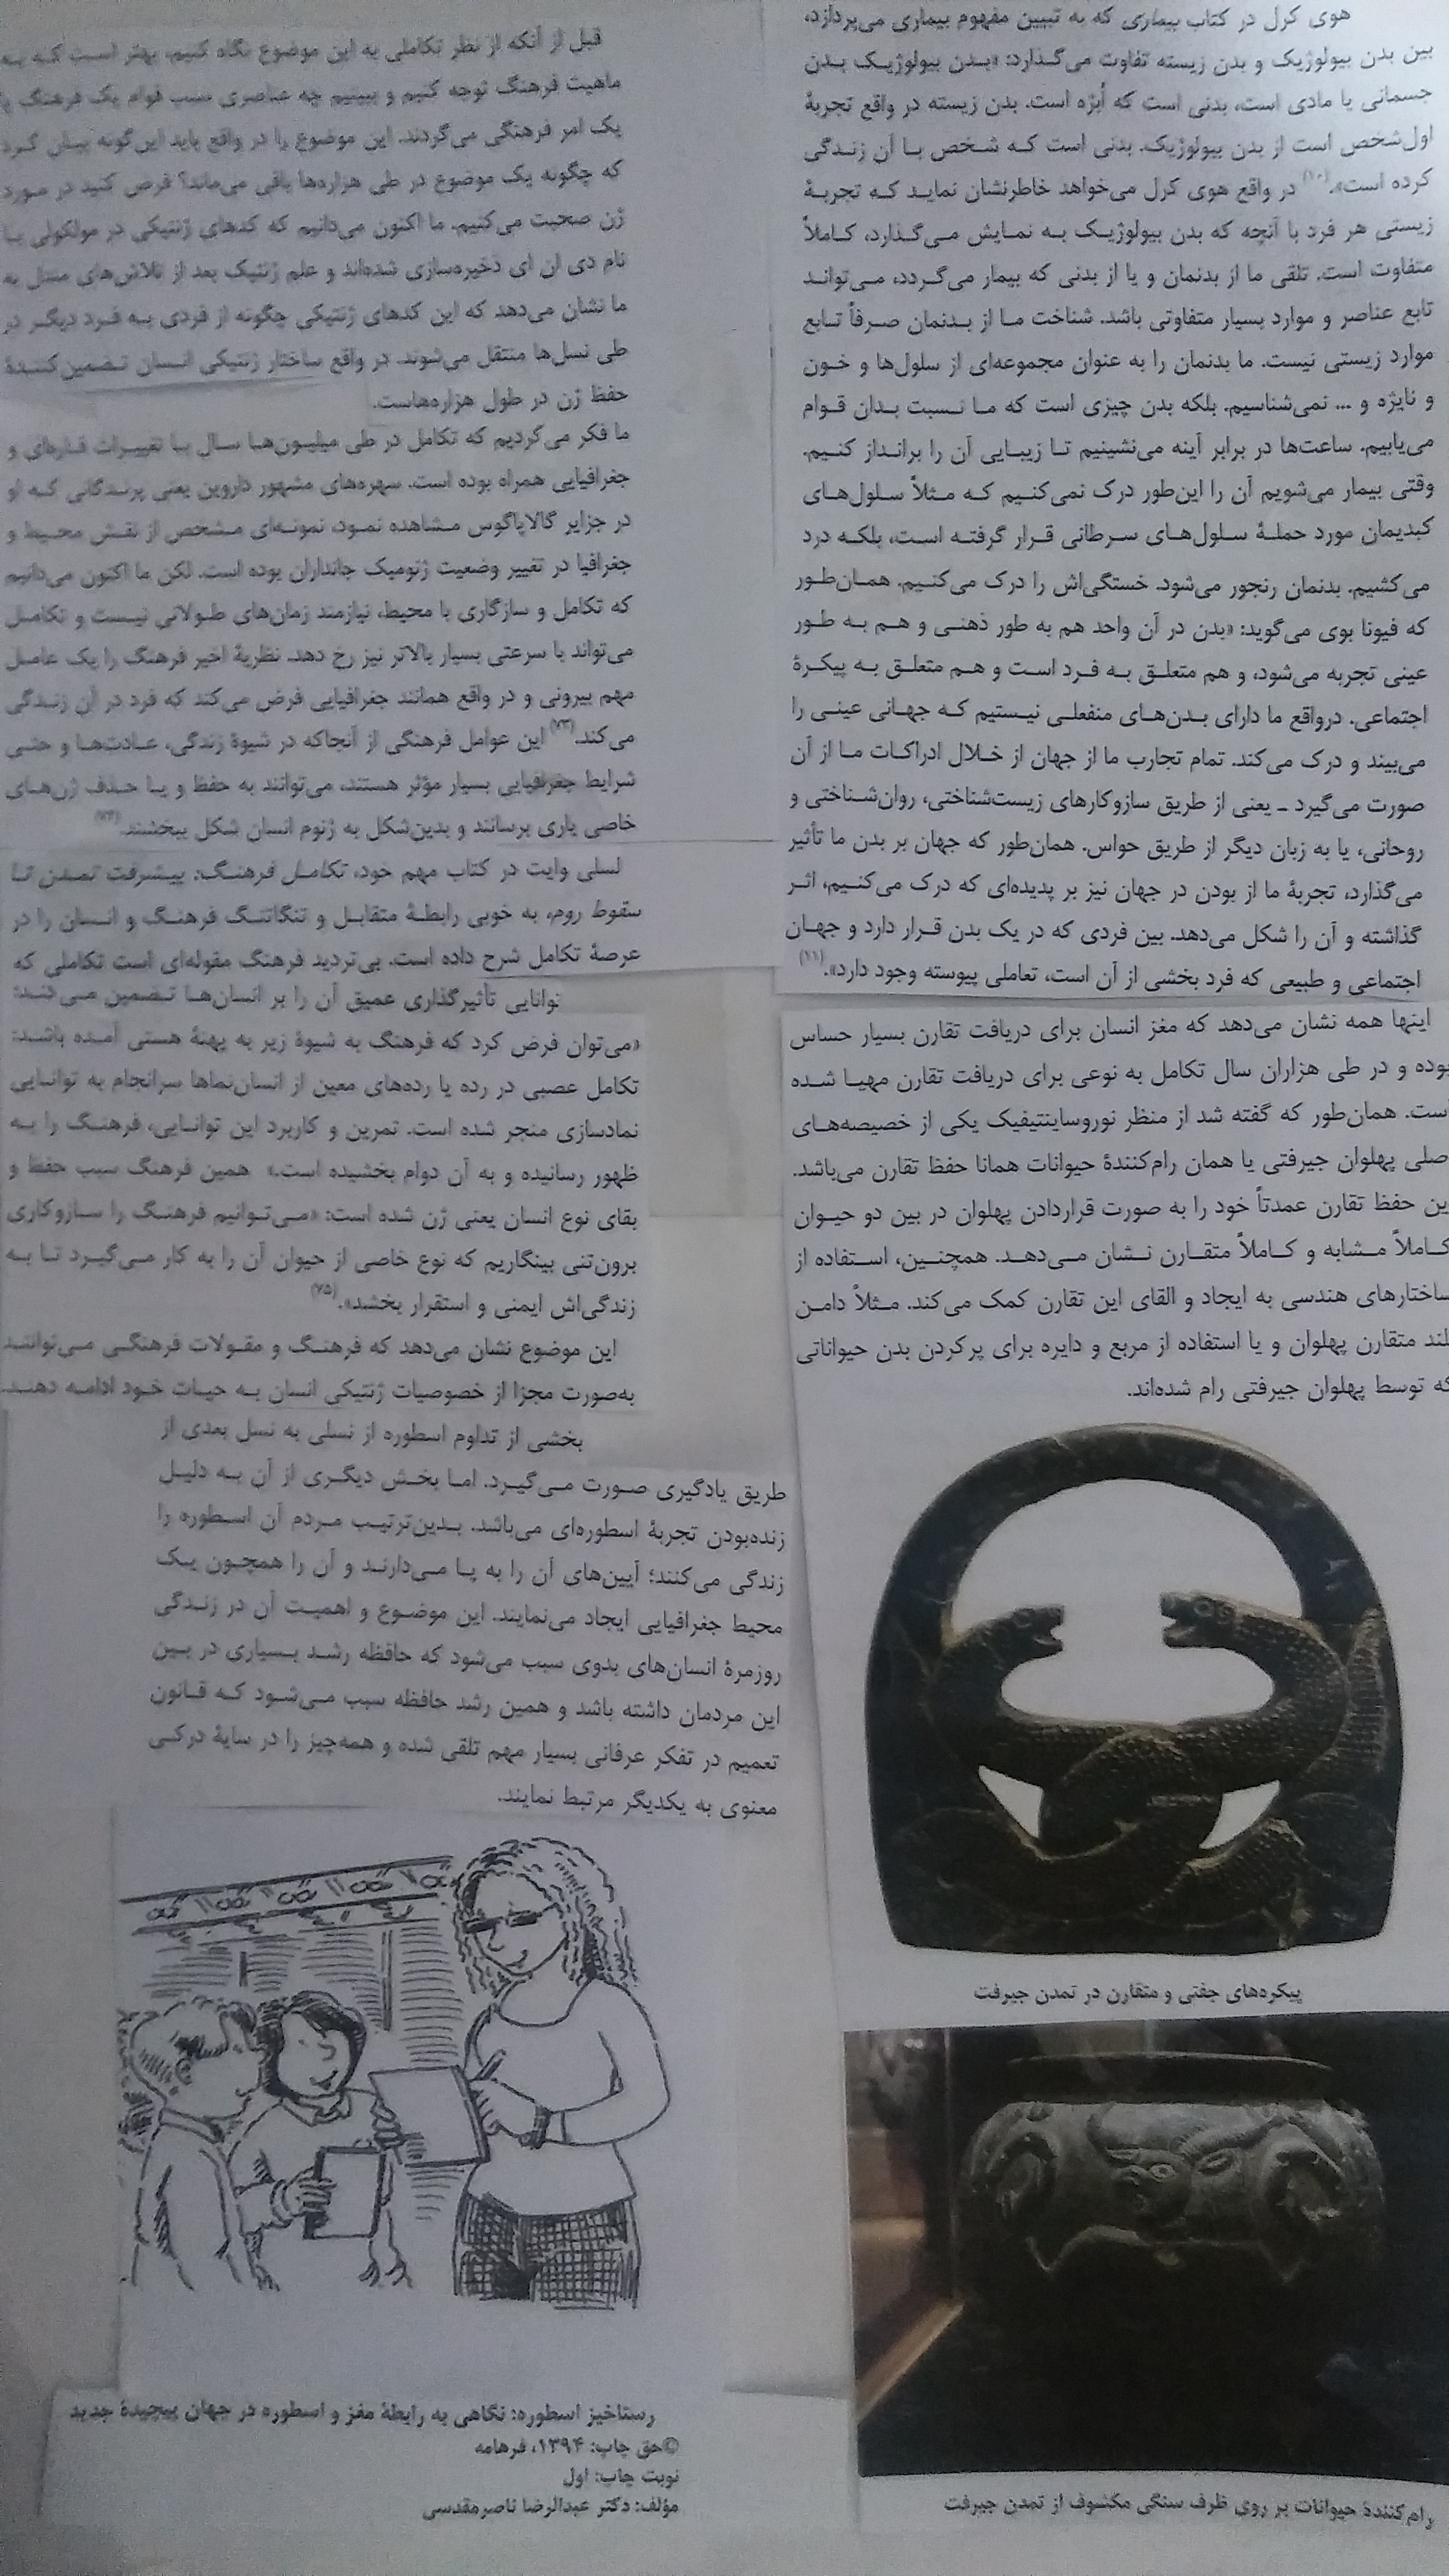 هوی کرل در کتاب بیماری که به تبیین مفهوم بیماری می‌پردازد،
بین بدن بیولوژیک و بدن زیسته تفاوت می‌گذارد: «بدن بیولوژیک بدن
جسمانی یا مادی است، بدنی است که اُبژه است. بدن زیسته در واقع تجربهٔ
اول‌شخص است از بدن بیولوژیک. بدنی است که شخص با آن زندگی
کرده است».(۱۰) در واقع هوی کرل می‌خواهد خاطرنشان نماید که تجربهٔ
زیستی هر فرد با آنچه که بدن بیولوژیک به نمایش می‌گذارد، کاملاً
متفاوت است. تلقی ما از بدنمان و یا از بدنی که بیمار می‌گردد، می‌تواند
تابع عناصر و موارد بسیار متفاوتی باشد. شناخت ما از بدنمان صرفاً تابع
موارد زیستی نیست. ما بدنمان را به عنوان مجموعه‌ای از سلول‌ها و خون
و نایژه و ... نمی‌شناسیم. بلکه بدن چیزی است که ما نسبت بدان قوام
می‌یابیم. ساعت‌ها در برابر آینه می‌نشینیم تا زیبایی آن را برانداز کنیم.
وقتی بیمار می‌شویم آن را این‌طور درک نمی‌کنیم که مثلاً سلول‌های
کبدیمان مورد حملهٔ سلول‌های سرطانی قرار گرفته است، بلکه درد
می‌کشیم. بدنمان رنجور می‌شود. خستگی‌اش را درک می‌کنیم. همان‌طور
که فیونا بوی می‌گوید: «بدن در آن واحد هم به طور ذهنی و هم به طور
عینی تجربه می‌شود، و هم متعلق به فرد است و هم متعلق به پیکرهٔ
اجتماعی. درواقع ما دارای بدن‌های منفعلی نیستیم که جهانی عینی را
می‌بیند و درک می‌کند. تمام تجارب ما از جهان از خلال ادراکات ما از آن
صورت می‌گیرد ـ یعنی از طریق سازوکارهای زیست‌شناختی، روان‌شناختی و
روحانی، یا به زبان دیگر از طریق حواس. همان‌طور که جهان بر بدن ما تأثیر
می‌گذارد، تجربهٔ ما از بودن در جهان نیز بر پدیده‌ای که درک می‌کنیم، اثر
گذاشته و آن را شکل می‌دهد. بین فردی که در یک بدن قرار دارد و جهان
اجتماعی و طبیعی که فرد بخشی از آن است، تعاملی پیوسته وجود دارد».(۱۱)
اینها همه نشان می‌دهد که مغز انسان برای دریافت تقارن بسیار حساس
بوده و در طی هزاران سال تکامل به نوعی برای دریافت تقارن مهیا شده
است. همان‌طور که گفته شد از منظر نوروساینتیفیک یکی از خصیصه‌های
صلی پهلوان جیرفتی یا همان رام‌کنندهٔ حیوانات همانا حفظ تقارن می‌باشد.
ین حفظ تقارن عمدتاً خود را به صورت قراردادن پهلوان در بین دو حیوان
کاملاً مشابه و کاملاً متقارن نشان می‌دهد. همچنین، استفاده از
ساختارهای هندسی به ایجاد و القای این تقارن کمک می‌کند. مثلاً دامن
لند متقارن پهلوان و یا استفاده از مربع و دایره برای پرکردن بدن حیواناتی
که توسط پهلوان جیرفتی رام شده‌اند.
پیکره‌های جفتی و متقارن در تمدن جیرفت
رام‌کنندهٔ حیوانات بر روی ظرف سنگی مکشوف از تمدن جیرفت
قبل از آنکه از نظر تکاملی به این موضوع نگاه کنیم، بهتر است که به
ماهیت فرهنگ توجه کنیم و ببینیم چه عناصری سبب قوام یک فرهنگ یا
یک امر فرهنگی می‌گردند. این موضوع را در واقع باید این‌گونه بیان کرد
که چگونه یک موضوع در طی هزاره‌ها باقی می‌ماند؟ فرض کنید در مورد
ژن صحبت می‌کنیم. ما اکنون می‌دانیم که کدهای ژنتیکی در مولکولی با
نام دی ان ای ذخیره‌سازی شده‌اند و علم ژنتیک بعد از تلاش‌های مندل به
ما نشان می‌دهد که این کدهای ژنتیکی چگونه از فردی به فرد دیگر در
طی نسل‌ها منتقل می‌شوند. در واقع ساختار ژنتیکی انسان تضمین‌کنندهٔ
حفظ ژن در طول هزاره‌هاست.
ما فکر می‌کردیم که تکامل در طی میلیون‌ها سال با تغییرات قاره‌ای و
جغرافیایی همراه بوده است. سهره‌های مشهور داروین یعنی پرندگانی که او
در جزایر گالاپاگوس مشاهده نمود، نمونه‌ای مشخص از نقش محیط و
جغرافیا در تغییر وضعیت ژنومیک جانداران بوده است. لکن ما اکنون می‌دانیم
که تکامل و سازگاری با محیط، نیازمند زمان‌های طولانی نیست و تکامل
می‌تواند با سرعتی بسیار بالاتر نیز رخ دهد. نظریهٔ اخیر فرهنگ را یک عامل
مهم بیرونی و در واقع همانند جغرافیایی فرض می‌کند که فرد در آن زندگی
می‌کند.(۷۳) این عوامل فرهنگی از آنجاکه در شیوهٔ زندگی، عادت‌ها و حتی
شرایط جغرافیایی بسیار مؤثر هستند، می‌توانند به حفظ و یا حذف ژن‌های
خاصی یاری برسانند و بدین‌شکل به ژنوم انسان شکل ببخشند.(۷۴)
لسلی وایت در کتاب مهم خود، تکامل فرهنگ: پیشرفت تمدن تا
سقوط روم، به خوبی رابطهٔ متقابل و تنگاتنگ فرهنگ و انسان را در
عرصهٔ تکامل شرح داده است. بی‌تردید فرهنگ مقوله‌ای است تکاملی که
توانایی تأثیرگذاری عمیق آن را بر انسان‌ها تضمین می‌کند:
«می‌توان فرض کرد که فرهنگ به شیوهٔ زیر به پهنهٔ هستی آمده باشد:
تکامل عصبی در رده یا رده‌های معین از انسان‌نماها سرانجام به توانایی
نمادسازی منجر شده است. تمرین و کاربرد این توانایی، فرهنگ را به
ظهور رسانیده و به آن دوام بخشیده است.» همین فرهنگ سبب حفظ و
بقای نوع انسان یعنی ژن شده است: «می‌توانیم فرهنگ را سازوکاری
برون‌تنی بینگاریم که نوع خاصی از حیوان آن را به کار می‌گیرد تا به
زندگی‌اش ایمنی و استقرار بخشد».(۷۵)
این موضوع نشان می‌دهد که فرهنگ و مقولات فرهنگی می‌توانند
به‌صورت مجزا از خصوصیات ژنتیکی انسان به حیات خود ادامه دهند.
بخشی از تداوم اسطوره از نسلی به نسل بعدی از
طریق یادگیری صورت می‌گیرد. اما بخش دیگری از آن به دلیل
زنده‌بودن تجربهٔ اسطوره‌ای می‌باشد. بدین‌ترتیب مردم آن اسطوره را
زندگی می‌کنند؛ آیین‌های آن را به پا می‌دارند و آن را همچون یک
محیط جغرافیایی ایجاد می‌نمایند. این موضوع و اهمیت آن در زندگی
روزمرهٔ انسان‌های بدوی سبب می‌شود که حافظه رشد بسیاری در بین
این مردمان داشته باشد و همین رشد حافظه سبب می‌شود که قانون
تعمیم در تفکر عرفانی بسیار مهم تلقی شده و همه‌چیز را در سایهٔ درکی
معنوی به یکدیگر مرتبط نمایند.
رستاخیز اسطوره: نگاهی به رابطهٔ مغز و اسطوره در جهان پیچیدهٔ جدید
©حق چاپ: ۱۳۹۴، فرهامه
نوبت چاپ: اول
مؤلف: دکتر عبدالرضا ناصرمقدسی